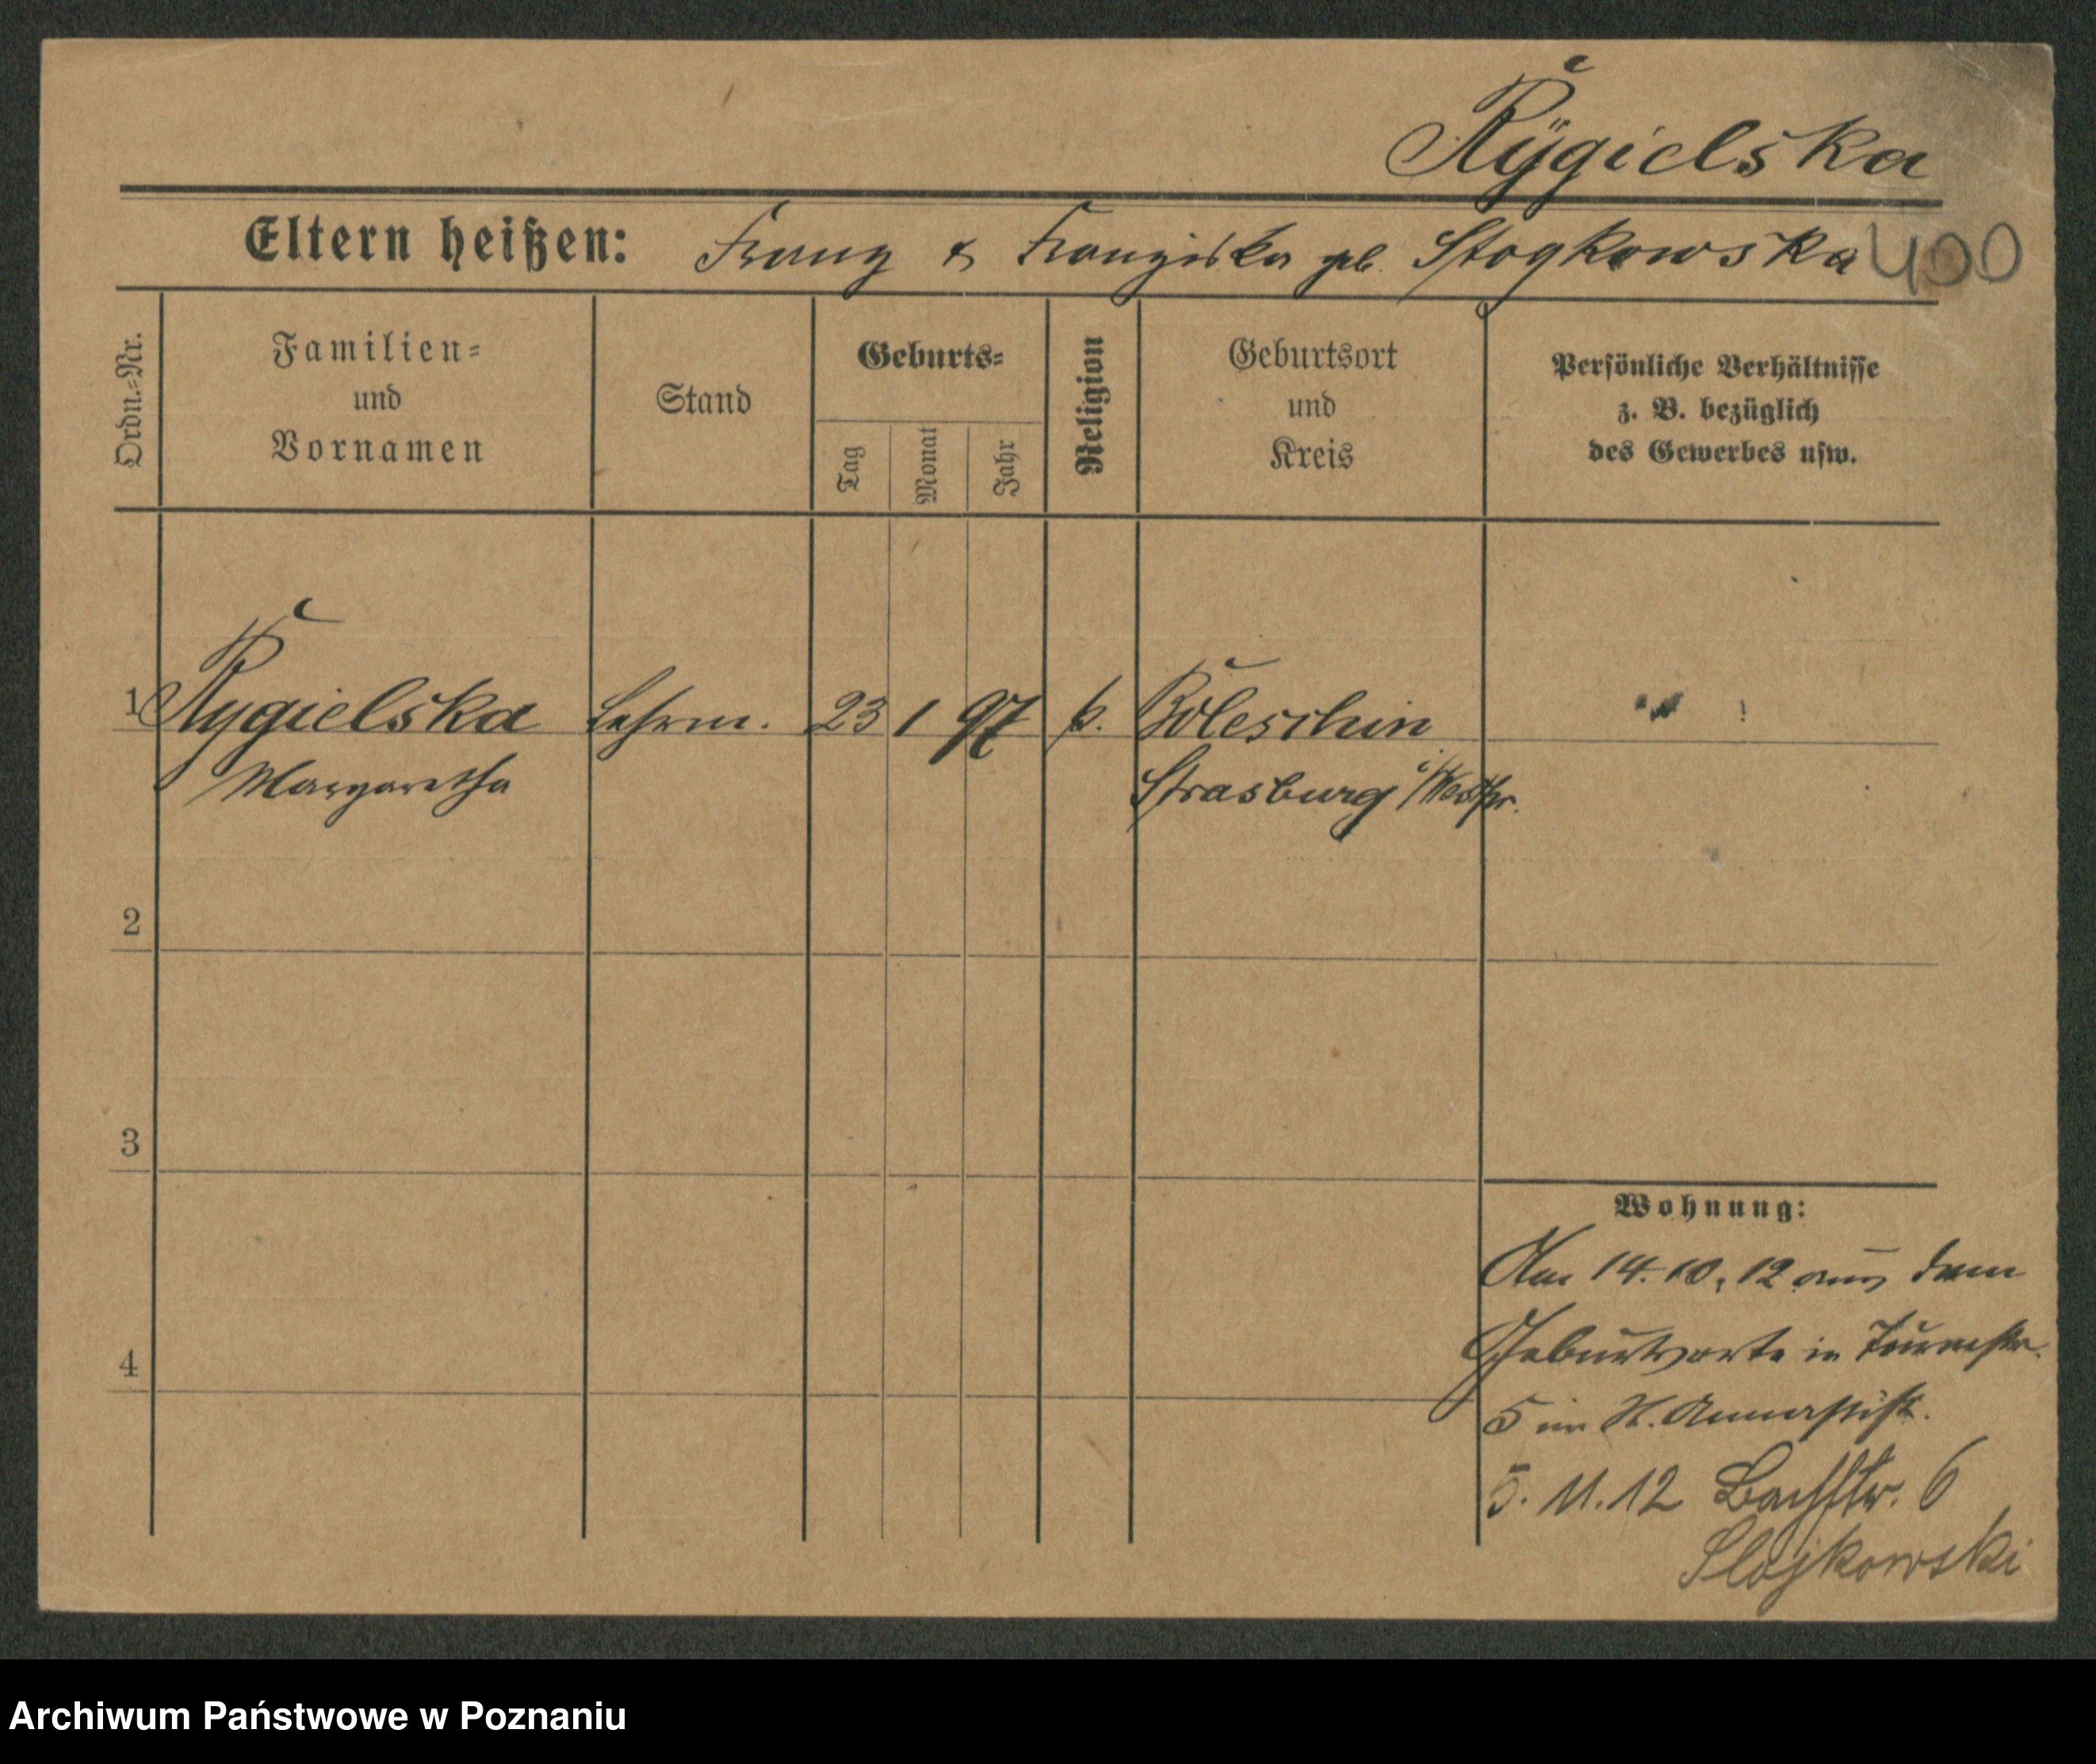 Rÿgielska
Eltern heißen: Franz & Franziska geb. Stogkowska 400
Ordn.-Nr.
Familien-
und
Vornamen
Stand
Geburts-
Tag
Monat
Jahr
Religion
Geburtsort
und
Kreis
Persönliche Verhältnisse
z. B. bezüglich
des Gewerbes usw.
1 Rygielska Lehrm. 23 1 97 k. Boleschin
Margaretha Strasburg i/Westpr.
2
3
4
Wohnung:
Am 14.10.12 aus dem
Geburtsorte in Turmstr.
5 im St. Annastift.
5. 11. 12 Bachstr. 6
Slojkowski
Archiwum Państwowe w Poznaniu